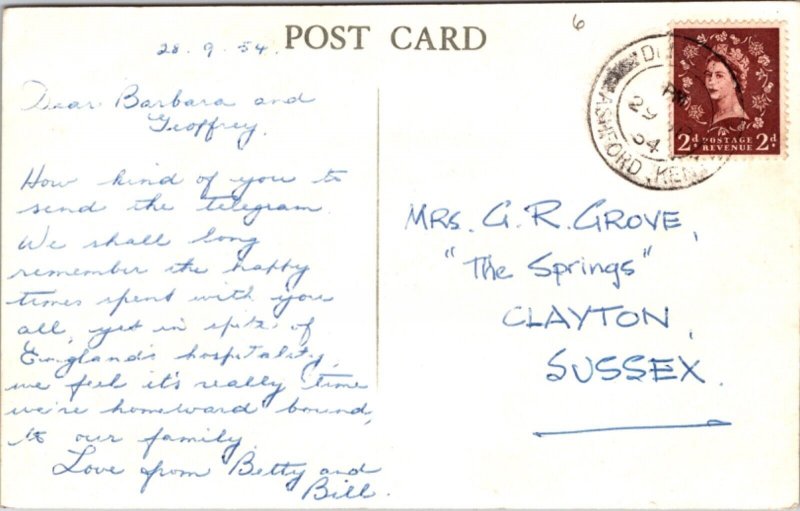 POST CARD
6
28.9.54.
Dear Barbara and
Geoffrey.
How kind of you to
send the telegram
We shall long
remember the happy
times spent with you
all, yet in spite of
England's hospitality,
we feel it's really time
we're homeward bound,
to our family.
Love from Betty and
Bill.
PM
29
54
ASHFORD, KENT
2d POSTAGE 2d
REVENUE
MRS. G. R. GROVE,
"The Springs"
CLAYTON,
SUSSEX.